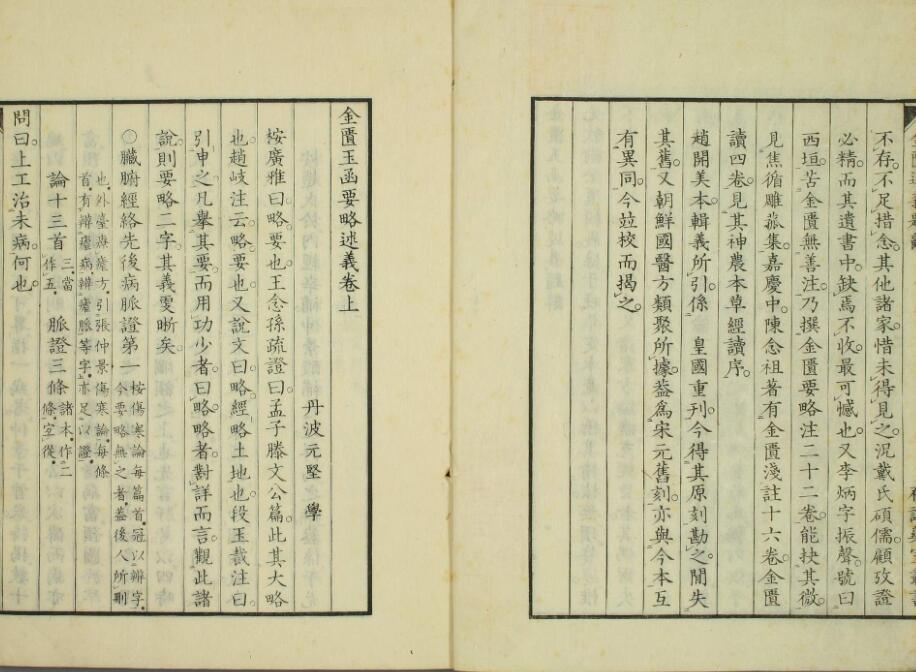 不存。不足措念。其他諸家。惜未得見之。況戴氏碩儒。顧攷證
必精。而其遺書中。缺焉不收。最可憾也。又李炳字振聲。號曰
西垣。苦金匱無善注。乃撰金匱要略注二十二卷。能抉其微。
見焦循雕菰集。嘉慶中。陳念祖著有金匱淺註十六卷。金匱
讀四卷。見其神農本草經讀序。
趙開美本。輯義所引。係 皇國重刊。今得其原刻勘之。間失
其舊。又朝鮮國醫方類聚所據。葢爲宋元舊刻。亦與今本互
有異同。今竝校而揭之。
金匱玉函要略述義卷上
丹波元堅 學
按廣雅曰。略。要也。王念孫疏證曰。孟子滕文公篇。此其大略
也。趙岐注云。略。要也。又說文曰。略。經略土地也。段玉裁注曰。
引申之。凡擧其要而用功少者。曰略。略者。對詳而言。觀此諸
說。則要略二字。其義雯晰矣。
○臟腑經絡先後病脈證第一 按傷寒論每篇首。冠以辨字。
今要略無之者。葢後人所刪
也。外臺療瘧方。引張仲景傷寒論。每條
首。有辨瘧病。辨瘧脈等字。亦足以證。
論十三首 三。當
作五。 脈證三條 諸本。作二
條。宜從。
問曰。上工治未病。何也。